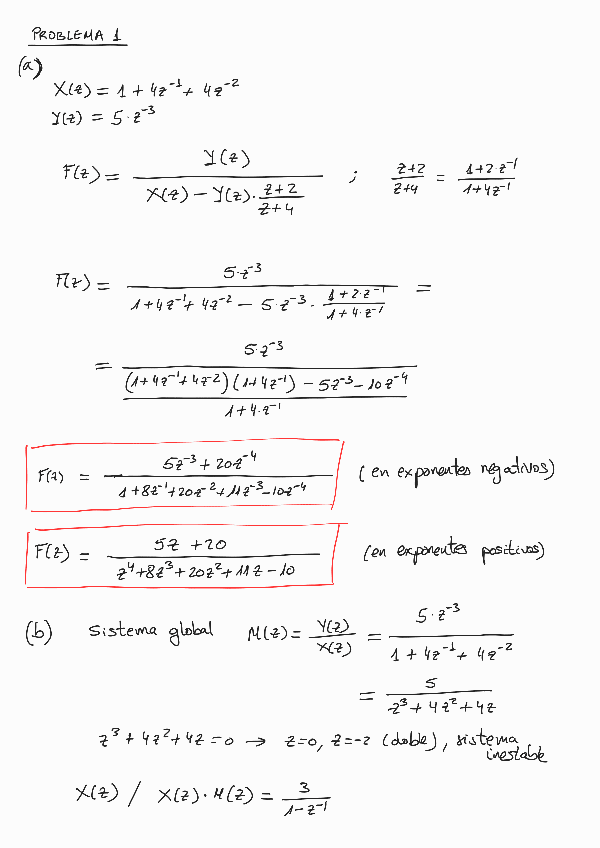 PROBLEMA 1
(a)
X(z) = 1 + 4z⁻¹ + 4z⁻²
Y(z) = 5·z⁻³
F(z) = Y(z) / (X(z) − Y(z)·(z+2)/(z+4)) ; (z+2)/(z+4) = (1+2·z⁻¹)/(1+4z⁻¹)
F(z) = 5·z⁻³ / (1+4z⁻¹+4z⁻² − 5·z⁻³·(1+2·z⁻¹)/(1+4·z⁻¹)) =
= 5·z⁻³ / (((1+4z⁻¹+4z⁻²)(1+4z⁻¹) − 5z⁻³ − 10z⁻⁴) / (1+4·z⁻¹))
F(z) = (5z⁻³ + 20z⁻⁴) / (1+8z⁻¹+20z⁻²+11z⁻³−10z⁻⁴) (en exponentes negativos)
F(z) = (5z + 20) / (z⁴+8z³+20z²+11z−10) (en exponentes positivos)
(b) Sistema global M(z) = Y(z)/X(z) = 5·z⁻³ / (1 + 4z⁻¹ + 4z⁻²)
= 5 / (z³+4z²+4z)
z³ + 4z² + 4z = 0 → z=0, z=-2 (doble), sistema
inestable
X(z) / X(z)·M(z) = 3 / (1−z⁻¹)